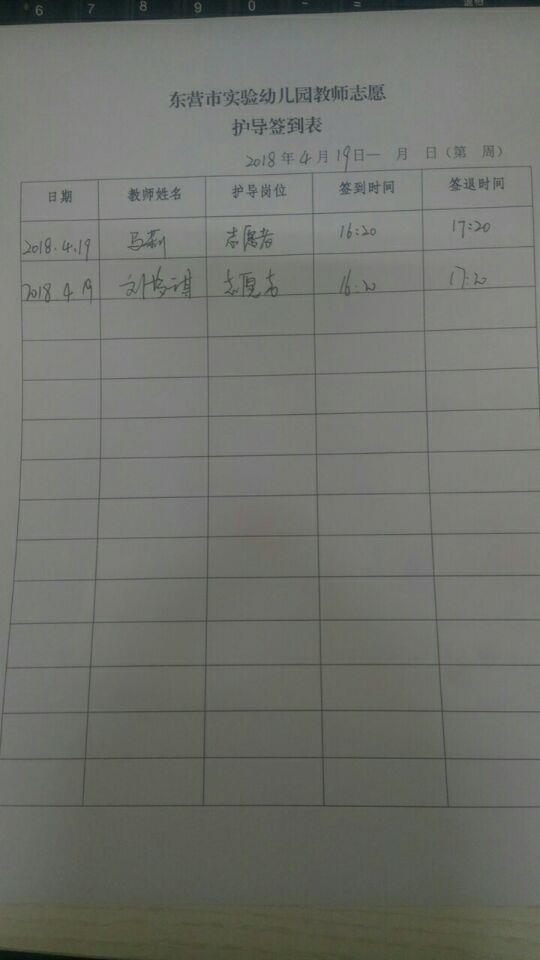 6 7 8 9 0 - = 退格
东营市实验幼儿园教师志愿
护导签到表
2018年4月19日— 月 日(第 周)
日期 教师姓名 护导岗位 签到时间 签退时间
2018.4.19 马莉 志愿者 16:20 17:20
2018.4.19 志愿者 16:20 17:20